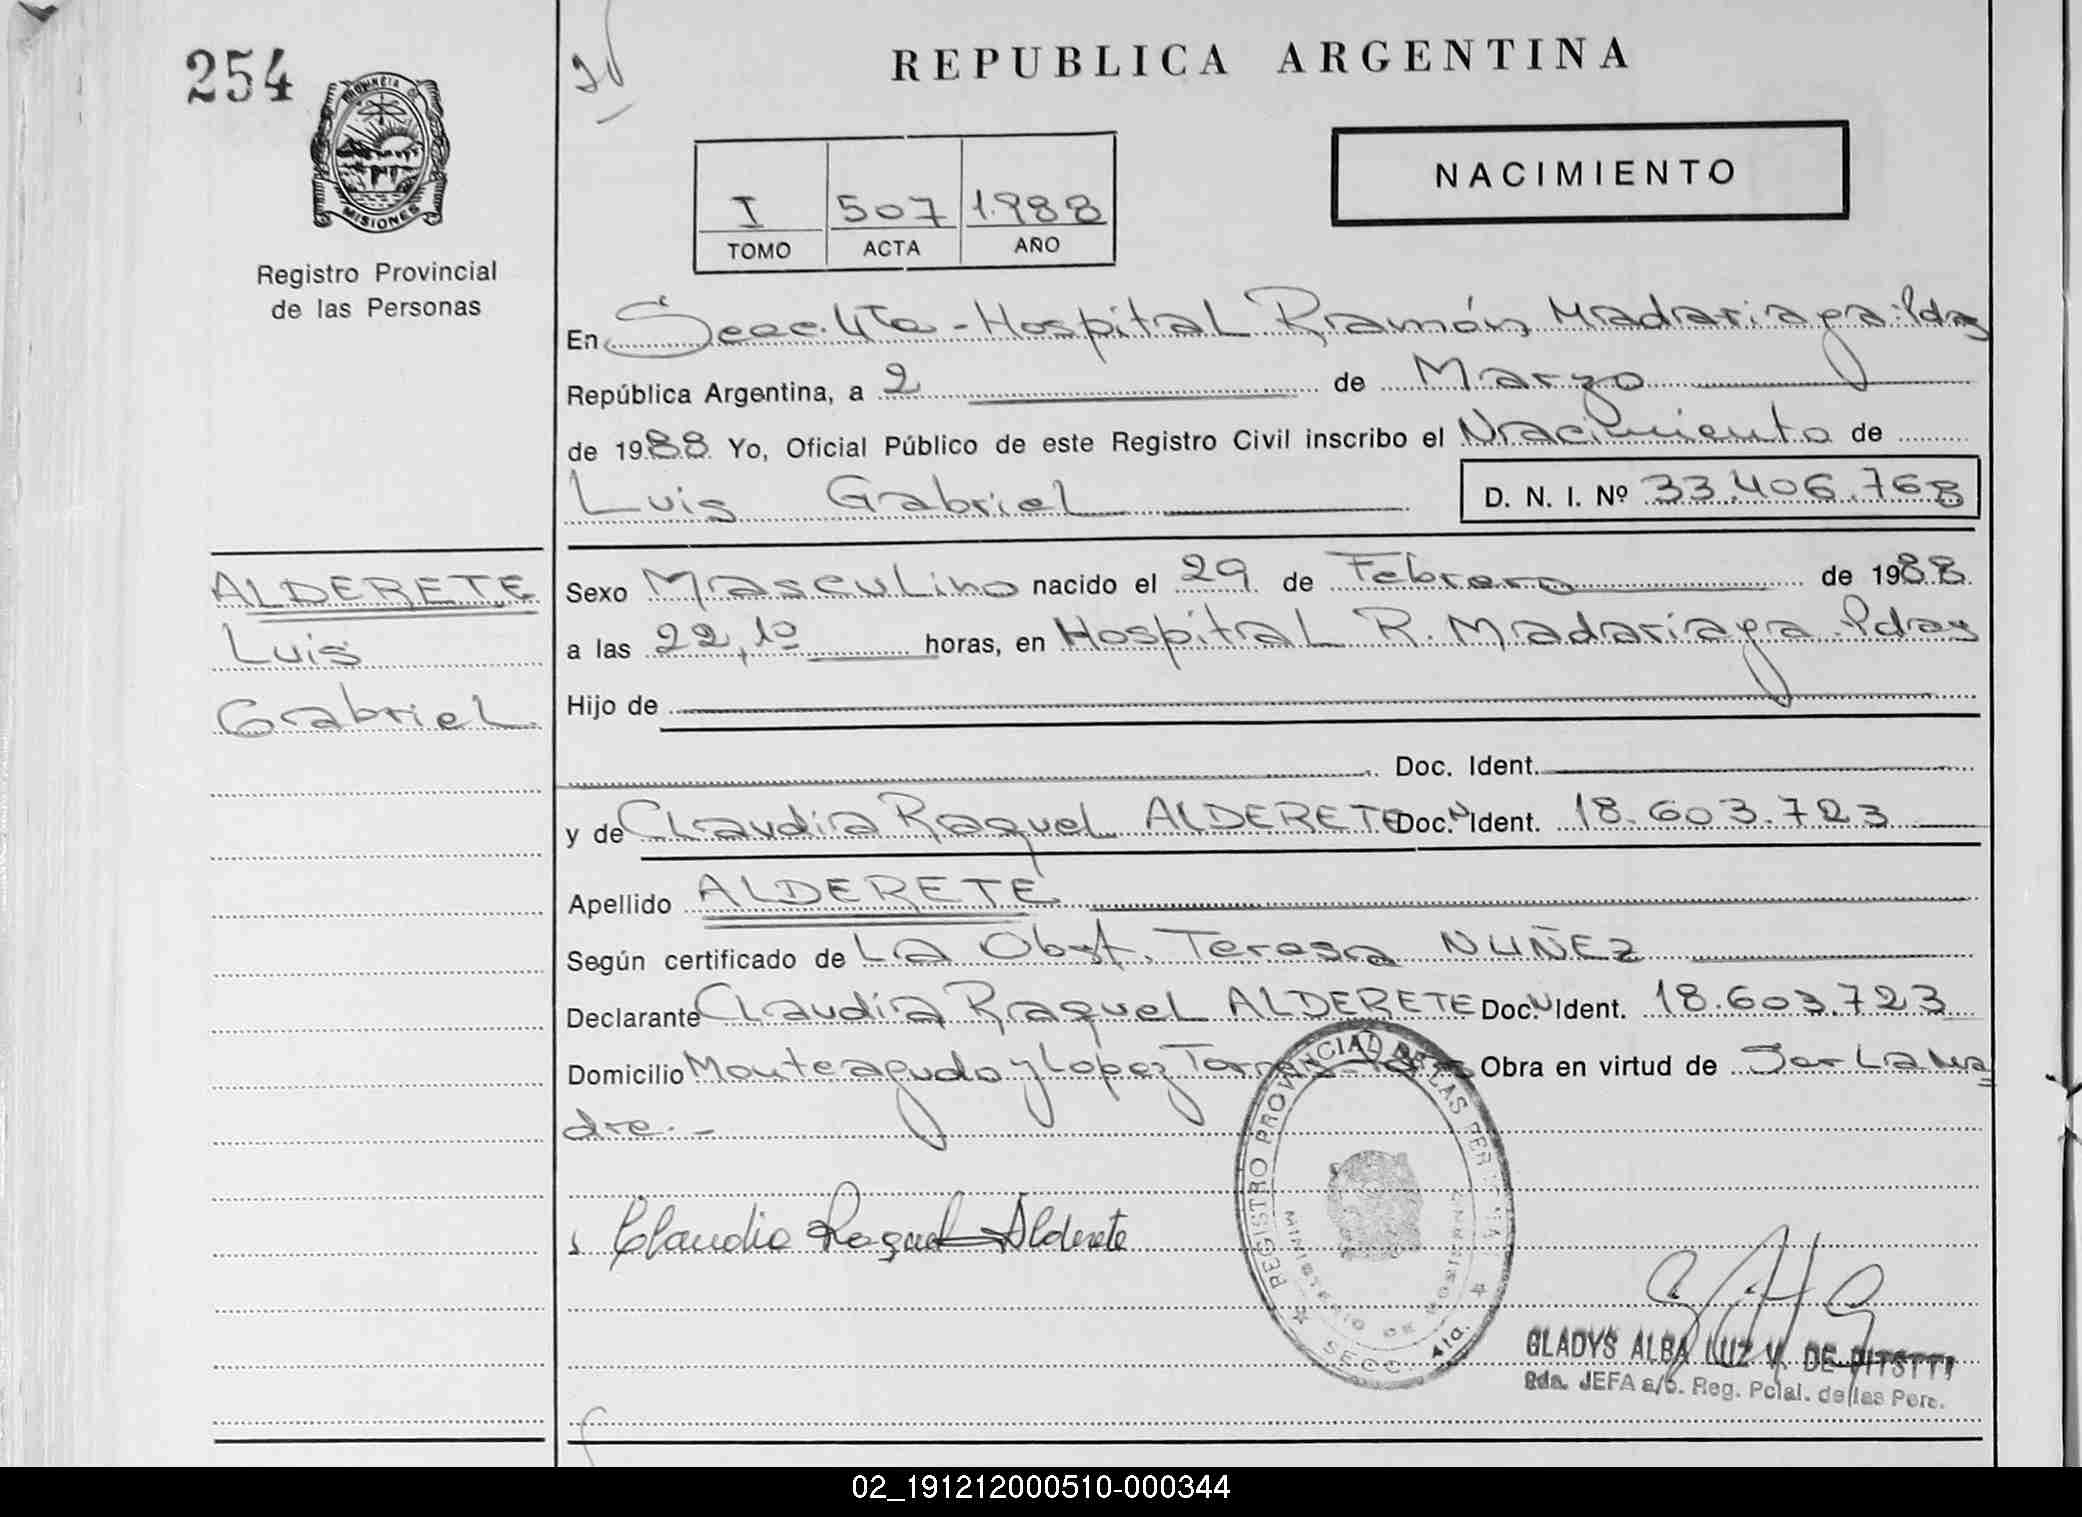 254
REPUBLICA ARGENTINA
PROVINCIA DE
MISIONES
Registro Provincial
de las Personas
I 507 1.988
TOMO ACTA AÑO
NACIMIENTO
En Secc. 4ta - Hospital Ramón Madariaga. Pdas
República Argentina, a 2 de Marzo
de 1988 Yo, Oficial Público de este Registro Civil inscribo el Nacimiento de
Luis Gabriel D. N. I. Nº 33.406.768
ALDERETE
Luis
Gabriel
Sexo Masculino nacido el 29 de Febrero de 1988
a las 22,10 horas, en Hospital R. Madariaga. Pdas
Hijo de
Doc. Ident.
y de Claudia Raquel ALDERETE Doc. N Ident. 18.603.723
Apellido ALDERETE
Según certificado de La Obst. Teresa NUÑEZ
Declarante Claudia Raquel ALDERETE Doc. N Ident. 18.603.723
Domicilio Monteagudo y Lopez Torres - Pdas Obra en virtud de Ser La Ma
dre. -
Claudia Raquel Alderete
REGISTRO PROVINCIAL DE LAS PERSONAS
MINISTERIO DE GOBIERNO
SECC. 4ta.
GLADYS ALBA LUZ V. DE
2da. JEFA a/c. Reg. Pcial. de las Pers.
02_191212000510-000344